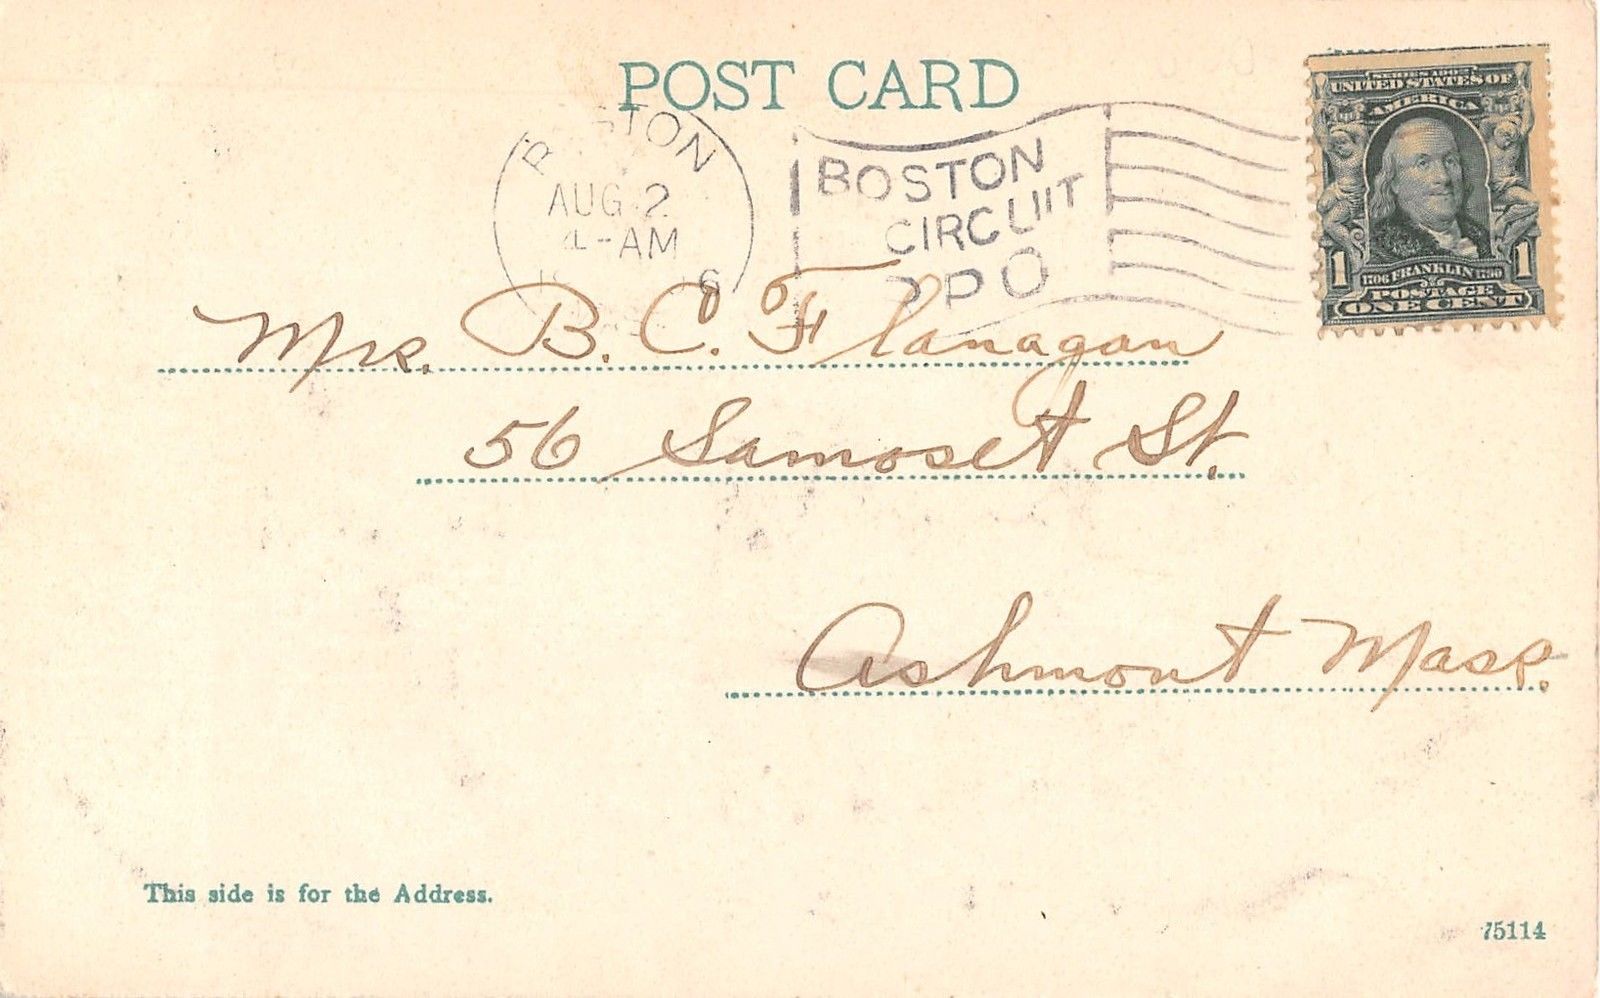 POST CARD
BOSTON
AUG 2
-AM
BOSTON
CIRCUIT
P O
SERIES 1902
UNITED STATES OF
AMERICA
1 1706 FRANKLIN 1790 1
POSTAGE
ONE CENT
Mrs. B. C. Flanagan
56 Samoset St.
Ashmont Mass.
This side is for the Address.
75114